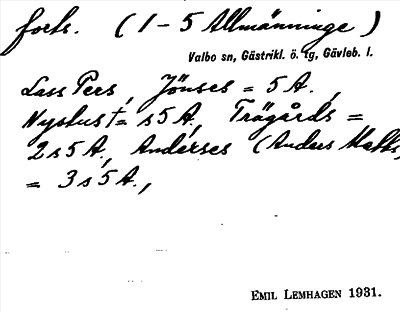 forts. (1-5 Allmänninge)
Valbo sn, Gästrikl. ö. tg, Gävleb. l.
Lass Pers, Jönses = 5 A.,
Nystust = s5 A., Trägårds =
2 s 5 A., Anderses (Anders Matts)
= 3 s 5 A.,
EMIL LEMHAGEN 1931.